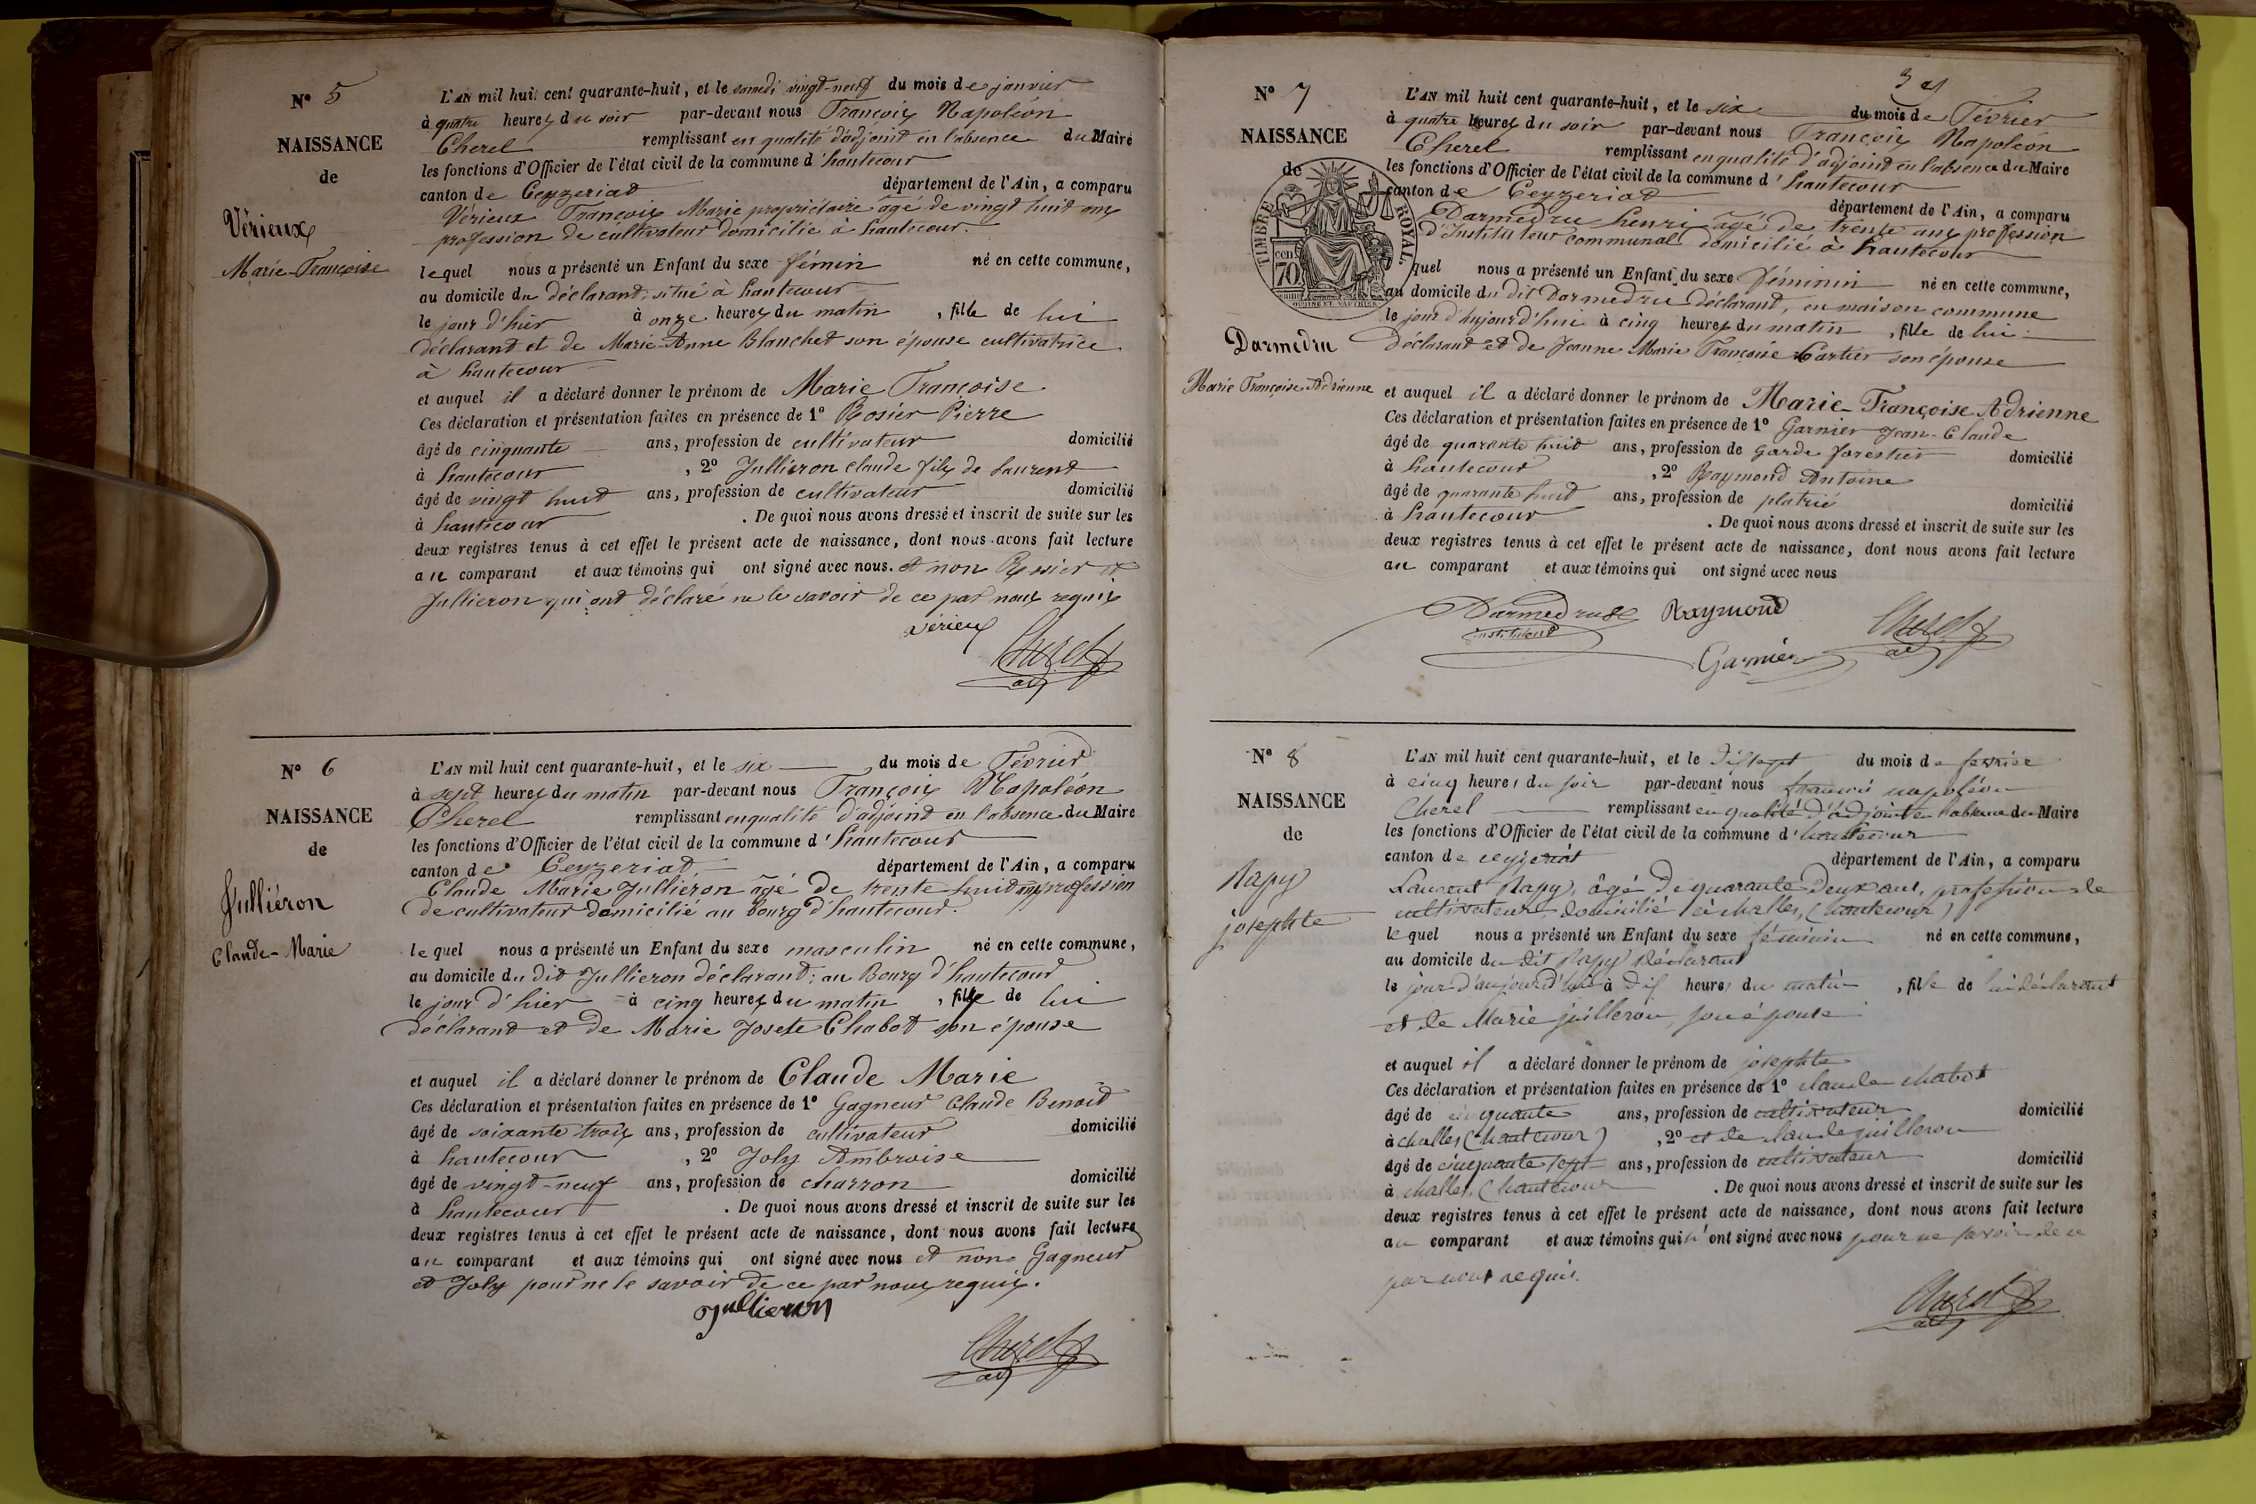 N° 5
NAISSANCE
de
Vérieux
Marie-Françoise
L'AN mil huit cent quarante-huit, et le samedi vingt-neuf du mois de janvier
à quatre heures du soir par-devant nous François Napoléon
Cherel remplissant en qualité d'adjoint en l'absence du Maire
les fonctions d'Officier de l'état civil de la commune d'hautecour
canton de Ceyzeriat département de l'Ain, a comparu
Vérieux François Marie propriétaire âgé de vingt huit ans
profession de cultivateur domicilié à hautecour.
lequel nous a présenté un Enfant du sexe fémin né en cette commune,
au domicile du déclarant, situé à hautecour
le jour d'hier à onze heures du matin, fille de lui
déclarant et de Marie-Anne Blanchet son épouse cultivatrice
à hautecour
et auquel il a déclaré donner le prénom de Marie Françoise
Ces déclaration et présentation faites en présence de 1° Rosier Pierre
âgé de cinquante ans, profession de cultivateur domicilié
à hautecour, 2° Jullieron claude fils de Laurent
âgé de vingt huit ans, profession de cultivateur domicilié
à hautecour. De quoi nous avons dressé et inscrit de suite sur les
deux registres tenus à cet effet le présent acte de naissance, dont nous avons fait lecture
au comparant et aux témoins qui ont signé avec nous. et non Rosier et
Jullieron qui ont déclaré ne le savoir de ce par nous requis
verieux
Cherel
adj
N° 6
NAISSANCE
de
Julliéron
Claude-Marie
L'AN mil huit cent quarante-huit, et le six du mois de Février
à sept heures du matin par-devant nous François Napoléon
Cherel remplissant en qualité d'adjoint en l'absence du Maire
les fonctions d'Officier de l'état civil de la commune d'hautecour
canton de Ceyzeriat département de l'Ain, a comparu
Claude Marie Jullieron âgé de trente huit ans profession
de cultivateur domicilié au bourg d'hautecour.
lequel nous a présenté un Enfant du sexe masculin né en cette commune,
au domicile du dit Jullieron déclarant: au Bourg d'hautecour
le jour d'hier à cinq heures du matin, fils de lui
déclarant et de Marie Josete Chabot son épouse
et auquel il a déclaré donner le prénom de Claude Marie
Ces déclaration et présentation faites en présence de 1° Gagneur Claude Benoit
âgé de soixante trois ans, profession de cultivateur domicilié
à hautecour, 2° Joly Ambroise
âgé de vingt-neuf ans, profession de charron domicilié
à hautecour. De quoi nous avons dressé et inscrit de suite sur les
deux registres tenus à cet effet le présent acte de naissance, dont nous avons fait lecture
au comparant et aux témoins qui ont signé avec nous et non Gagneur
et Joly pour ne le savoir de ce par nous requis.
Jullieron
Cherel
adj
N° 7
NAISSANCE
de
TIMBRE ROYAL
70 cen
Darmedru
Marie Françoise Adrienne
L'AN mil huit cent quarante-huit, et le six du mois de Février
à quatre heures du soir par-devant nous François Napoléon
Cherel remplissant en qualité d'adjoint en l'absence du Maire
les fonctions d'Officier de l'état civil de la commune d'hautecour
canton de Ceyzeriat département de l'Ain, a comparu
Darmedru henri âgé de trente ans profession
d'Instituteur communal domicilié à hautecour
quel nous a présenté un Enfant du sexe féminin né en cette commune,
au domicile du dit Darmedru déclarant, en maison commune
le jour d'aujourd'hui à cinq heures du matin, fille de lui
déclarant et de Jeanne Marie Françoise Cartier son épouse
et auquel il a déclaré donner le prénom de Marie-Françoise Adrienne
Ces déclaration et présentation faites en présence de 1° Garnier Jean-Claude
âgé de quarante huit ans, profession de Garde forestier domicilié
à hautecour, 2° Raymond Antoine
âgé de quarante huit ans, profession de platrié domicilié
à hautecour. De quoi nous avons dressé et inscrit de suite sur les
deux registres tenus à cet effet le présent acte de naissance, dont nous avons fait lecture
au comparant et aux témoins qui ont signé avec nous
Darmedru Raymond Cherel
instituteur adj
Garnier
N° 8
NAISSANCE
de
Rapy
josephte
L'AN mil huit cent quarante-huit, et le dix sept du mois de fevrier
à cinq heures du soir par-devant nous françois napoléon
Cherel remplissant en qualité d'adjoint en l'absence du Maire
les fonctions d'Officier de l'état civil de la commune d'hautecour
canton de ceyzeriat département de l'Ain, a comparu
Laurent Rapy, âgé de quarante deux ans, profession de
cultivateur domicilié à challes, (hautecour)
lequel nous a présenté un Enfant du sexe féminin né en cette commune,
au domicile du dit Rapy déclarant
le jour d'aujourd'hui à dix heures du matin, fille de lui déclarant
et de Marie juilleron, son épouse
et auquel il a déclaré donner le prénom de josephte
Ces déclaration et présentation faites en présence de 1° claude chabot
âgé de cinquante ans, profession de cultivateur domicilié
à challes (hautecour), 2° et de claude juilleron
âgé de cinquante sept ans, profession de cultivateur domicilié
à challes, (hautecour. De quoi nous avons dressé et inscrit de suite sur les
deux registres tenus à cet effet le présent acte de naissance, dont nous avons fait lecture
au comparant et aux témoins qui n'ont signé avec nous pour ne savoir de ce
par nous requis.
Cherel
adj